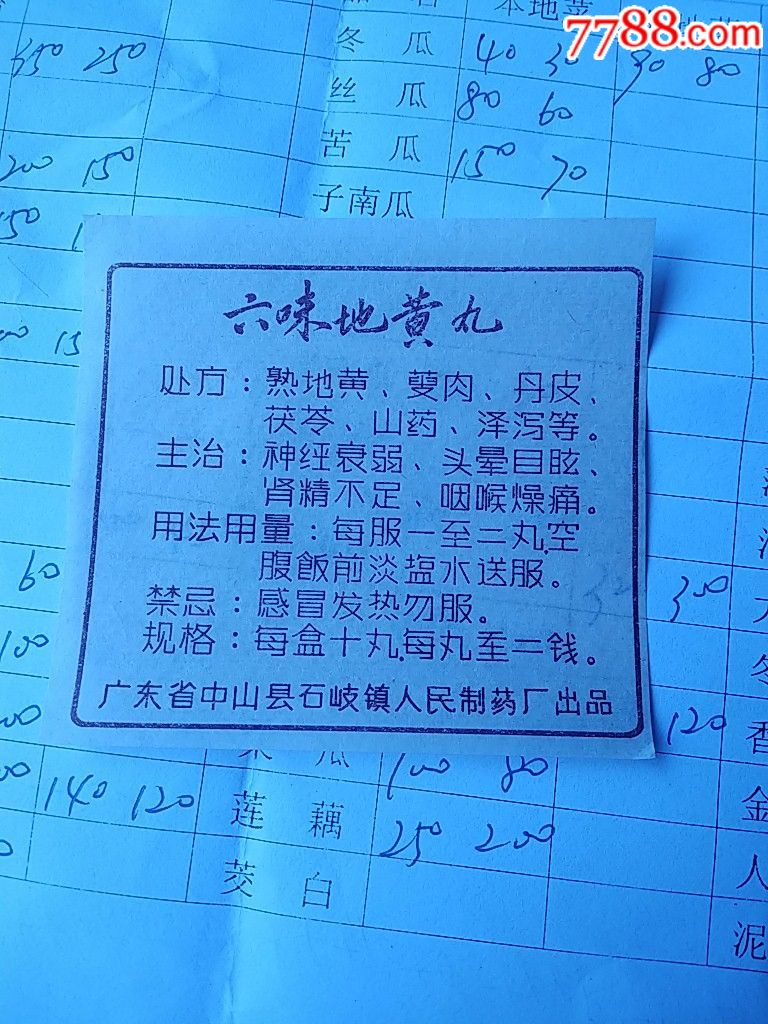 7788.com
本地菜
350 250
冬瓜 40 30 90 80
丝瓜 80 60
200 150
苦瓜 150 70
子南瓜
六味地黄丸
处方:熟地黄、萸肉、丹皮、
茯苓、山药、泽泻等。
主治:神经衰弱、头晕目眩、
肾精不足、咽喉燥痛。
用法用量:每服一至二丸,空
腹飯前淡盐水送服。
禁忌:感冒发热勿服。
规格:每盒十丸,每丸重二钱。
广东省中山县石岐镇人民制药厂出品
60
300
100
冬
120
香
瓜 100 80
140 120 莲藕 250 200
金
茭白
人
泥